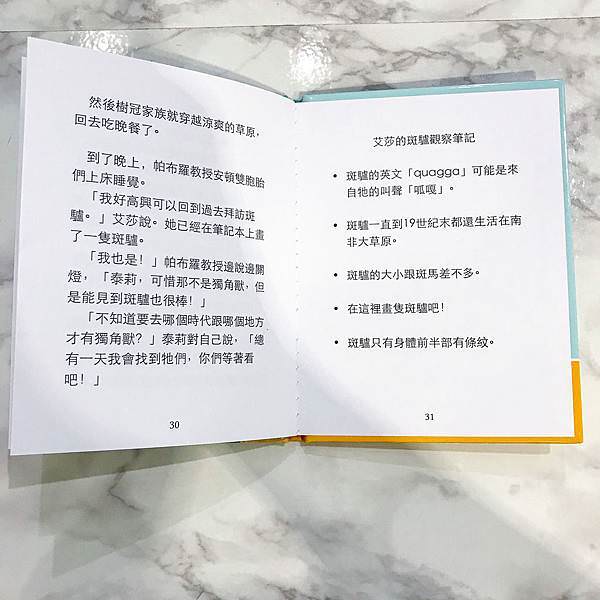 然後樹冠家族就穿越涼爽的草原，
回去吃晚餐了。
到了晚上，帕布羅教授安頓雙胞胎
們上床睡覺。
「我好高興可以回到過去拜訪斑
驢。」艾莎說。她已經在筆記本上畫
了一隻斑驢。
「我也是！」帕布羅教授邊說邊關
燈，「泰莉，可惜那不是獨角獸，但
是能見到斑驢也很棒！」
「不知道要去哪個時代跟哪個地方
才有獨角獸？」泰莉對自己說，「總
有一天我會找到牠們，你們等著看
吧！」
30
艾莎的斑驢觀察筆記
• 斑驢的英文「quagga」可能是來
自牠的叫聲「呱嘎」。
• 斑驢一直到19世紀末都還生活在南
非大草原。
• 斑驢的大小跟斑馬差不多。
• 在這裡畫隻斑驢吧！
• 斑驢只有身體前半部有條紋。
31